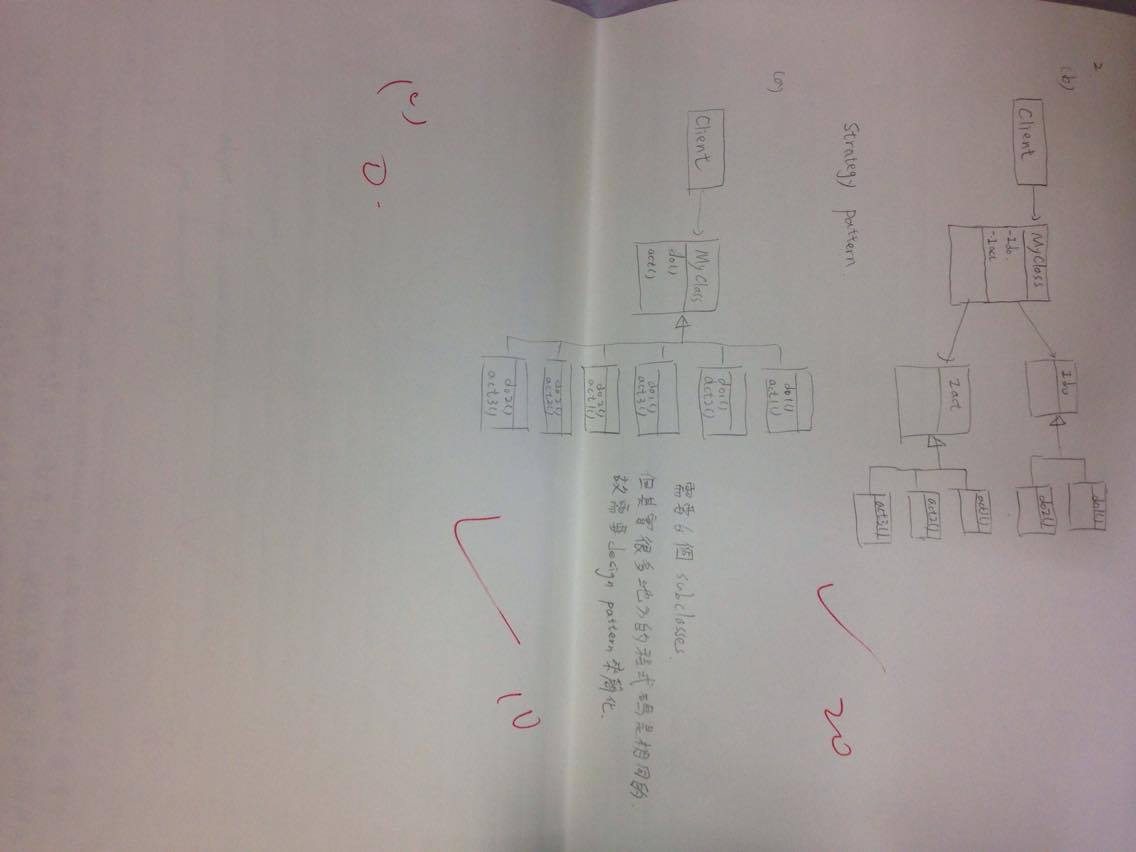 2
(b)
Client
MyClass
-Ido
-Iact
Ido
do1()
do2()
Iact
act1()
act2()
act3()
Strategy pattern.
20
(a)
Client
MyClass
do()
act()
do1()
act1()
do1()
act2()
do1()
act3()
do2()
act1()
do2()
act2()
do2()
act3()
需要6個 subclasses.
但其實很多地方的程式碼是相同的.
故需要 design pattern 來簡化.
10
(c)
0.